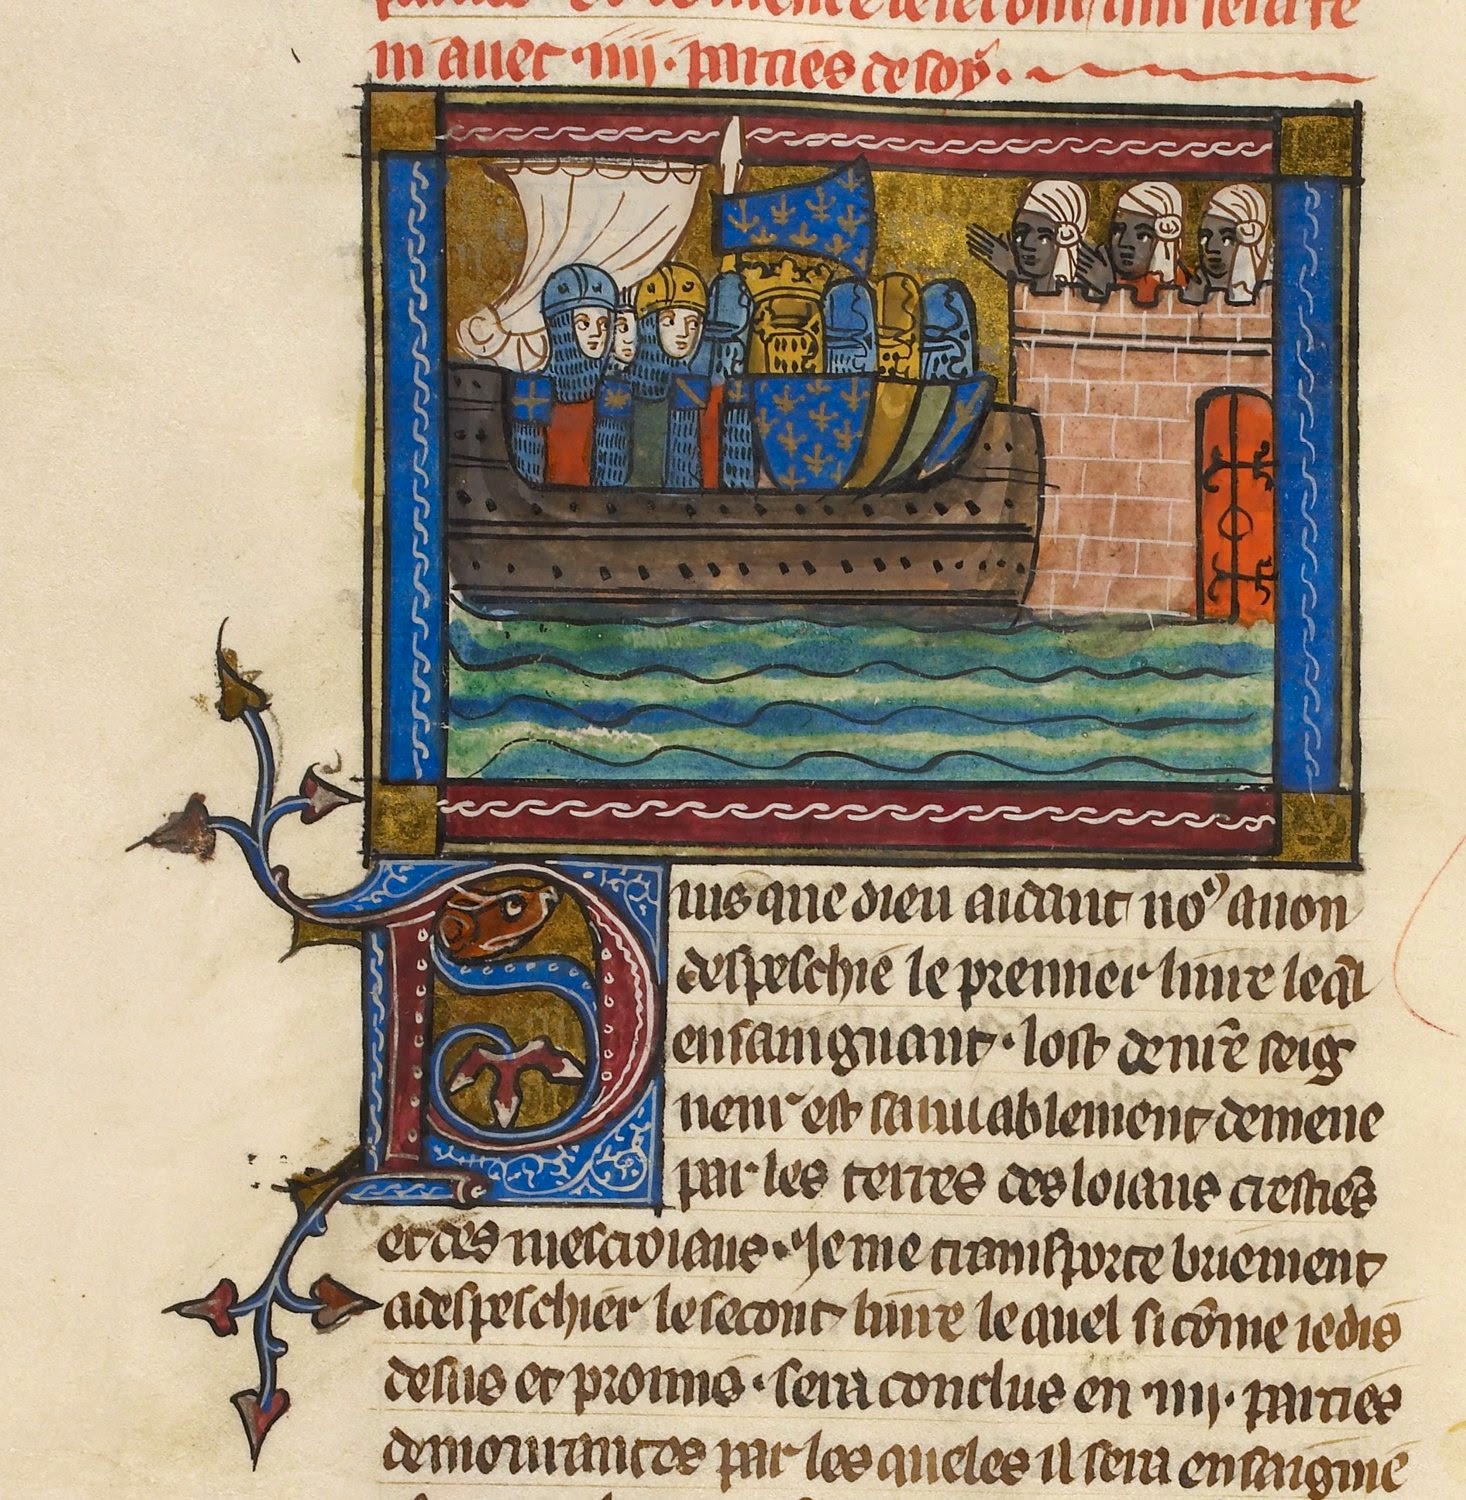 et coment le secont livre sera te
m avec .iiij. parties de soy.
Puis que dieu aidant no9 avon
despeschie le premier livre leq̃l
ensaingnant . lost de nr̃e seig
neur est sauvablement demene
par les terres des loiaus crestiẽs
et des mescroiaus . Je me transporte briement
a despeschier le secont livre le quel si cõme ie dis
desus et promis . sera conclus en .iiij. parties
demourantes par les queles il sera ensaignie